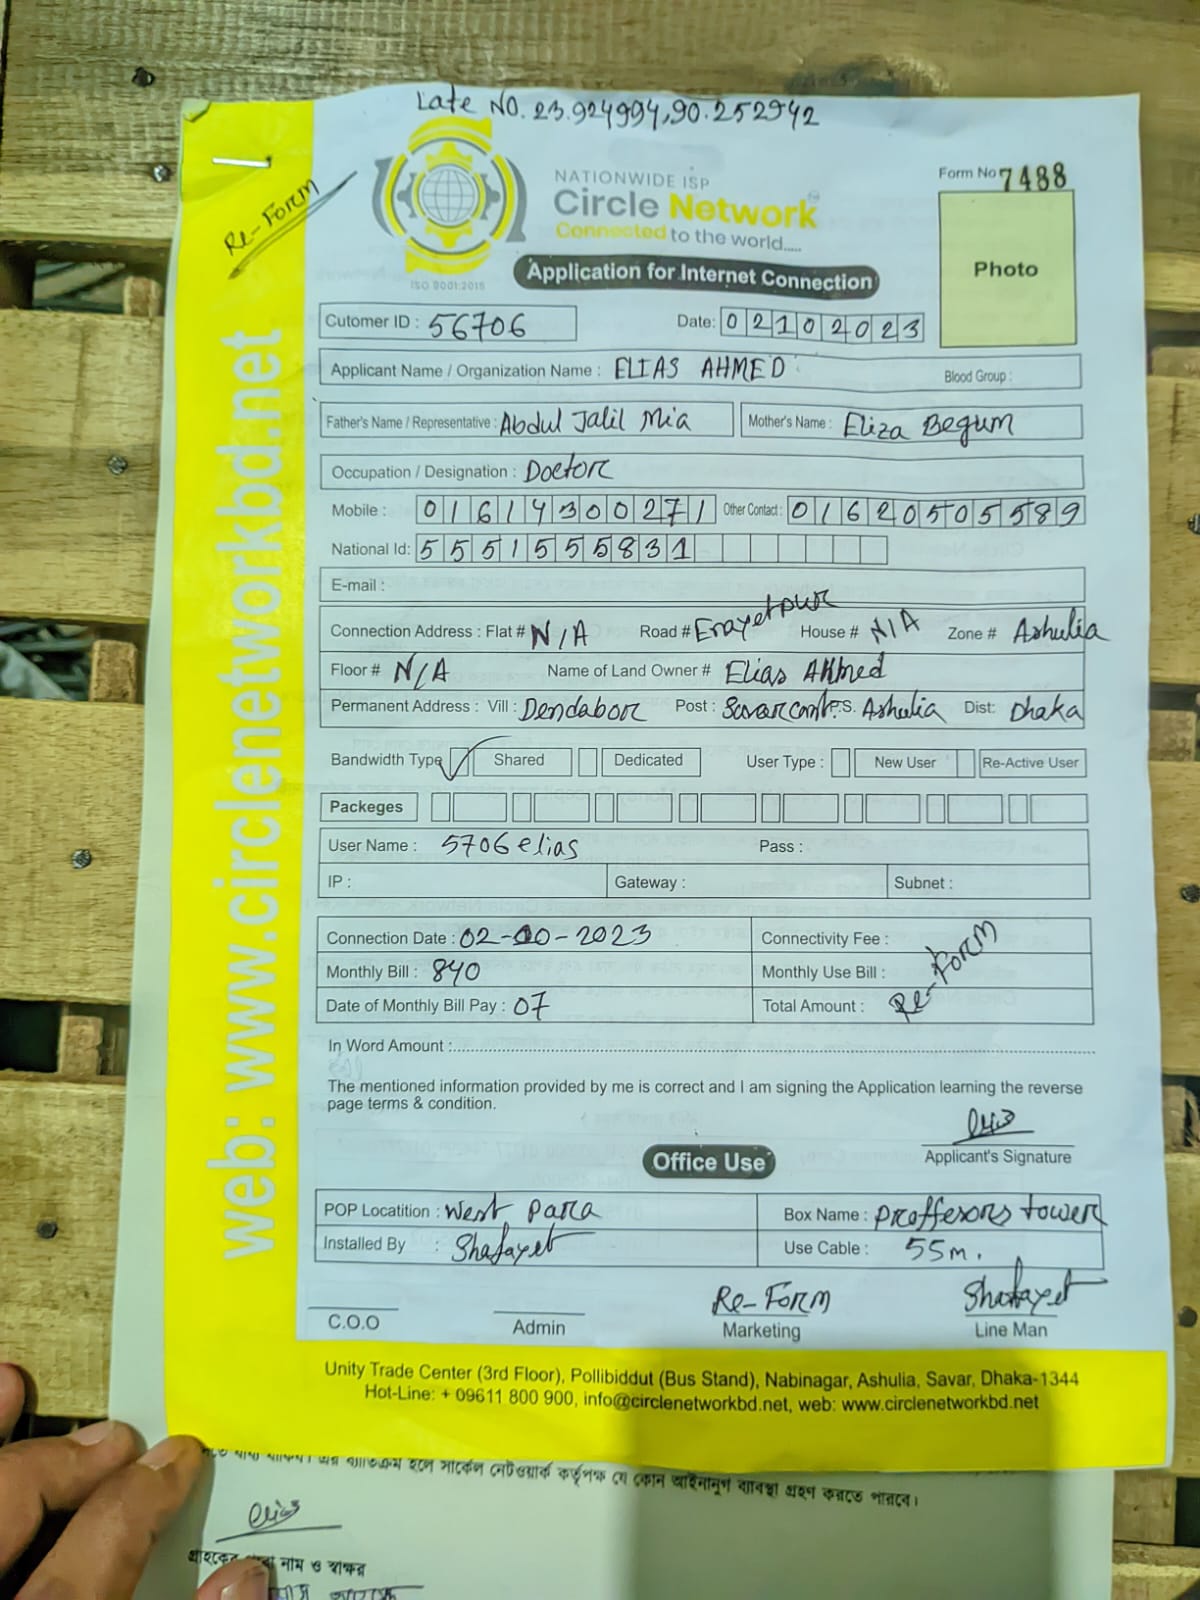 Late NO. 23.924994,90.252942
Re-Form
NATIONWIDE ISP
Circle Network
Connected to the world.....
ISO 9001:2015
Form No 7488
Photo
Application for Internet Connection
Cutomer ID : 56706 Date: 02102023
Applicant Name / Organization Name : ELIAS AHMED Blood Group :
Father's Name / Representative : Abdul Jalil Mia Mother's Name : Eliza Begum
Occupation / Designation : Doctor
Mobile : 01614300271 Other Contact : 01620505589
National Id: 5551555831
E-mail :
Connection Address : Flat # N/A Road # Enayetpur House # N/A Zone # Ashulia
Floor # N/A Name of Land Owner # Elias Ahmed
Permanent Address : Vill : Dendabor Post : Savar cant. P.S. Ashulia Dist: Dhaka
Bandwidth Type Shared Dedicated User Type : New User Re-Active User
Packeges
User Name : 5706elias Pass :
IP : Gateway : Subnet :
Connection Date : 02-10-2023 Connectivity Fee :
Monthly Bill : 840 Monthly Use Bill :
Date of Monthly Bill Pay : 07 Total Amount :
Re-Form
In Word Amount :
The mentioned information provided by me is correct and I am signing the Application learning the reverse
page terms & condition.
Applicant's Signature
Office Use
POP Locatition : West para Box Name : proffesors tower
Installed By : Shafayet Use Cable : 55m.
Re-Form Shafayet
C.O.O Admin Marketing Line Man
Unity Trade Center (3rd Floor), Pollibiddut (Bus Stand), Nabinagar, Ashulia, Savar, Dhaka-1344
Hot-Line: + 09611 800 900, info@circlenetworkbd.net, web: www.circlenetworkbd.net
web: www.circlenetworkbd.net
ব্যতিক্রম হলে সার্কেল নেটওয়ার্ক কর্তৃপক্ষ যে কোন আইনানুগ ব্যাবস্থা গ্রহণ করতে পারবে।
গ্রাহকের নাম ও স্বাক্ষর